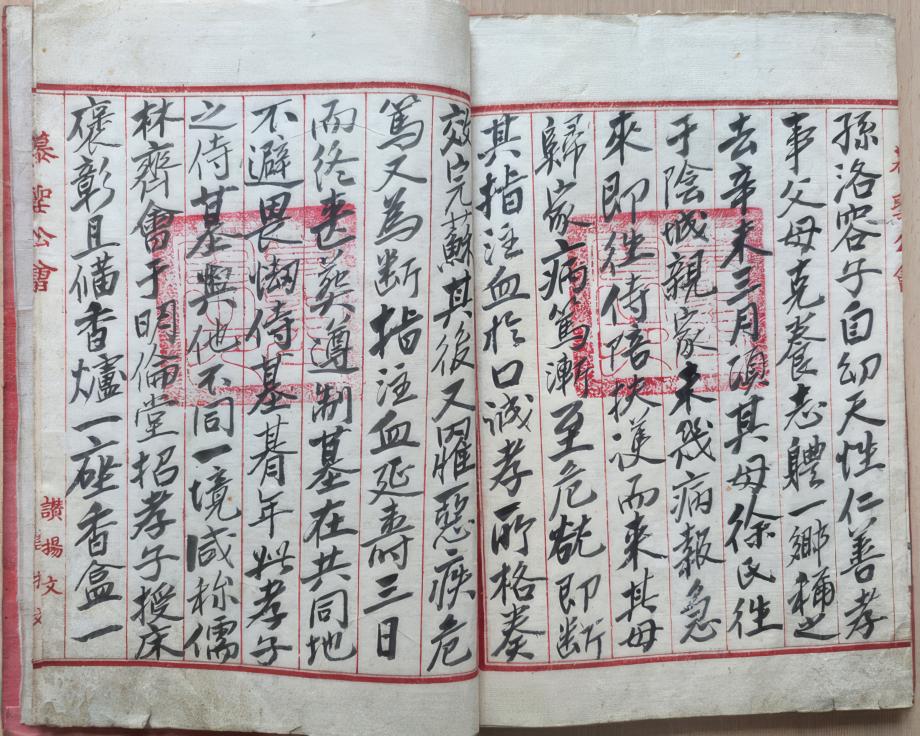 孫洛容子自幼天性仁善孝
事父母克養志體一鄉稱之
去辛未三月頃其母徐氏往
于陰城親家未幾病報急
來即往侍陪扶護而來其母
歸家病篤漸至危兢即断
其指注血於口誠孝所格奏
效完蘇其後又罹惡疾危
篤又為断指注血延壽三日
而終喪葬遵制墓在共同地
不避畏懶侍墓朞年此孝子
之侍墓與他不同一境咸称儒
林齊會于明倫堂招孝子授床
褒彰且備香爐一座香盒一
慕聖公會
讃揚文